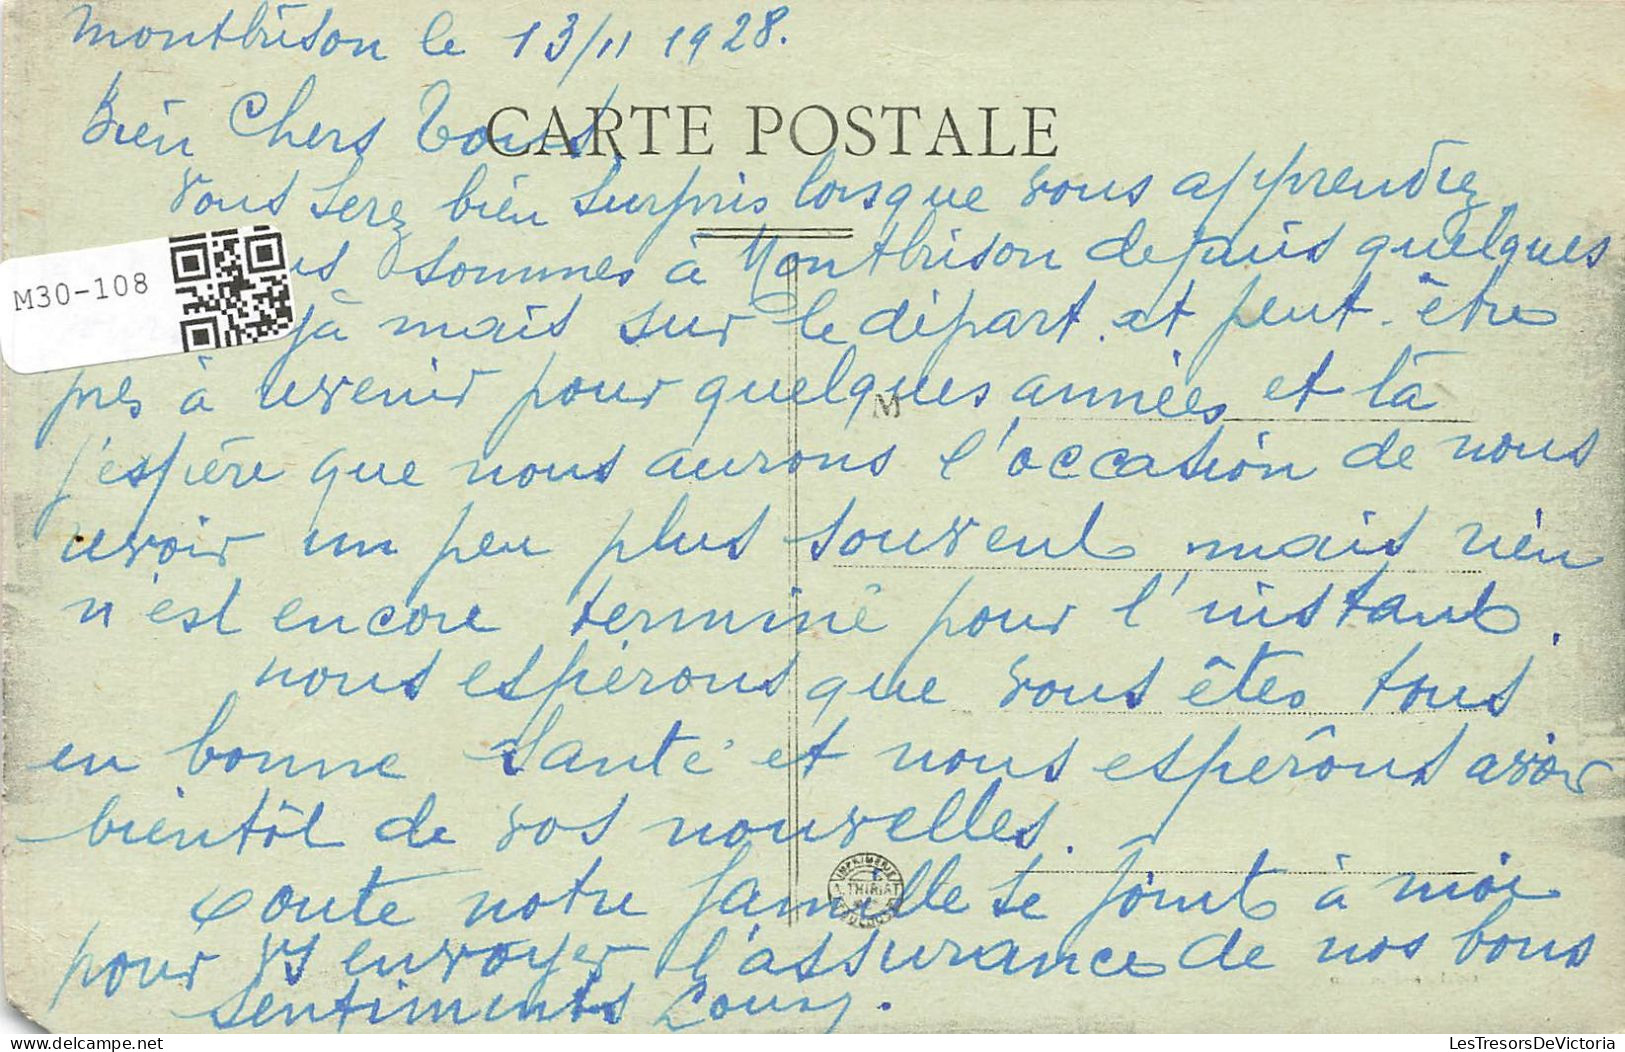 Montbrison le 13/11 1928.
CARTE POSTALE
Bien Chers Tous
vous serez bien surpris lorsque vous apprendrez
us sommes à Montbrison depuis quelques
M30-108
jà mais sur le départ et peut-être
près à revenir pour quelques années et là
M
j'espère que nous aurons l'occasion de nous
revoir un peu plus souvent mais rien
n'est encore terminé pour l'instant.
nous espérons que vous êtes tous
en bonne santé et nous espérons avoir
bientôt de vos nouvelles.
IMPRIMERIE
A. THIRIAT
TOULOUSE
toute notre famille se joint à moi
pour vs envoyer l'assurance de nos bons
sentiments
delcampe.net
LesTresorsDeVictoria